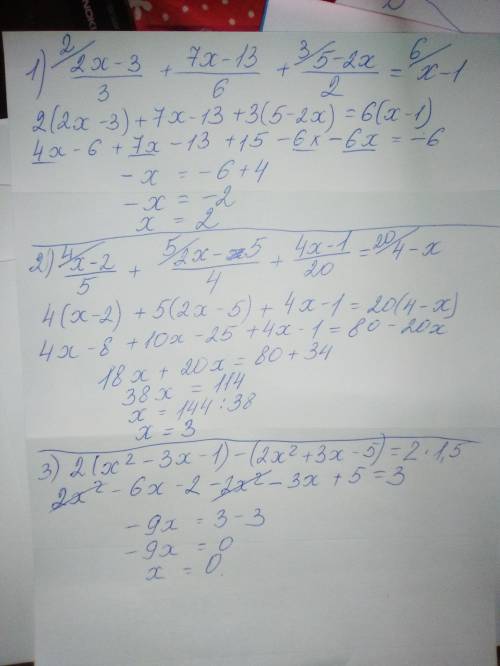 NOKIA
1) ²/ (2x-3)/3 + (7x-13)/6 + ³/ (5-2x)/2 = ⁶/ x-1
2(2x-3)+7x-13+3(5-2x)=6(x-1)
4x-6+7x-13+15-6x-6x=-6
-x = -6+4
-x = -2
x = 2
2) ⁴/ (x-2)/5 + ⁵/ (2x-5)/4 + (4x-1)/20 = ²⁰/ 4-x
4(x-2)+5(2x-5)+4x-1=20(4-x)
4x-8+10x-25+4x-1=80-20x
18x+20x=80+34
38x = 114
x = 144:38
x = 3
3) 2(x²-3x-1)-(2x²+3x-5)=2·1,5
2x²-6x-2-2x²-3x+5=3
-9x = 3-3
-9x = 0
x = 0